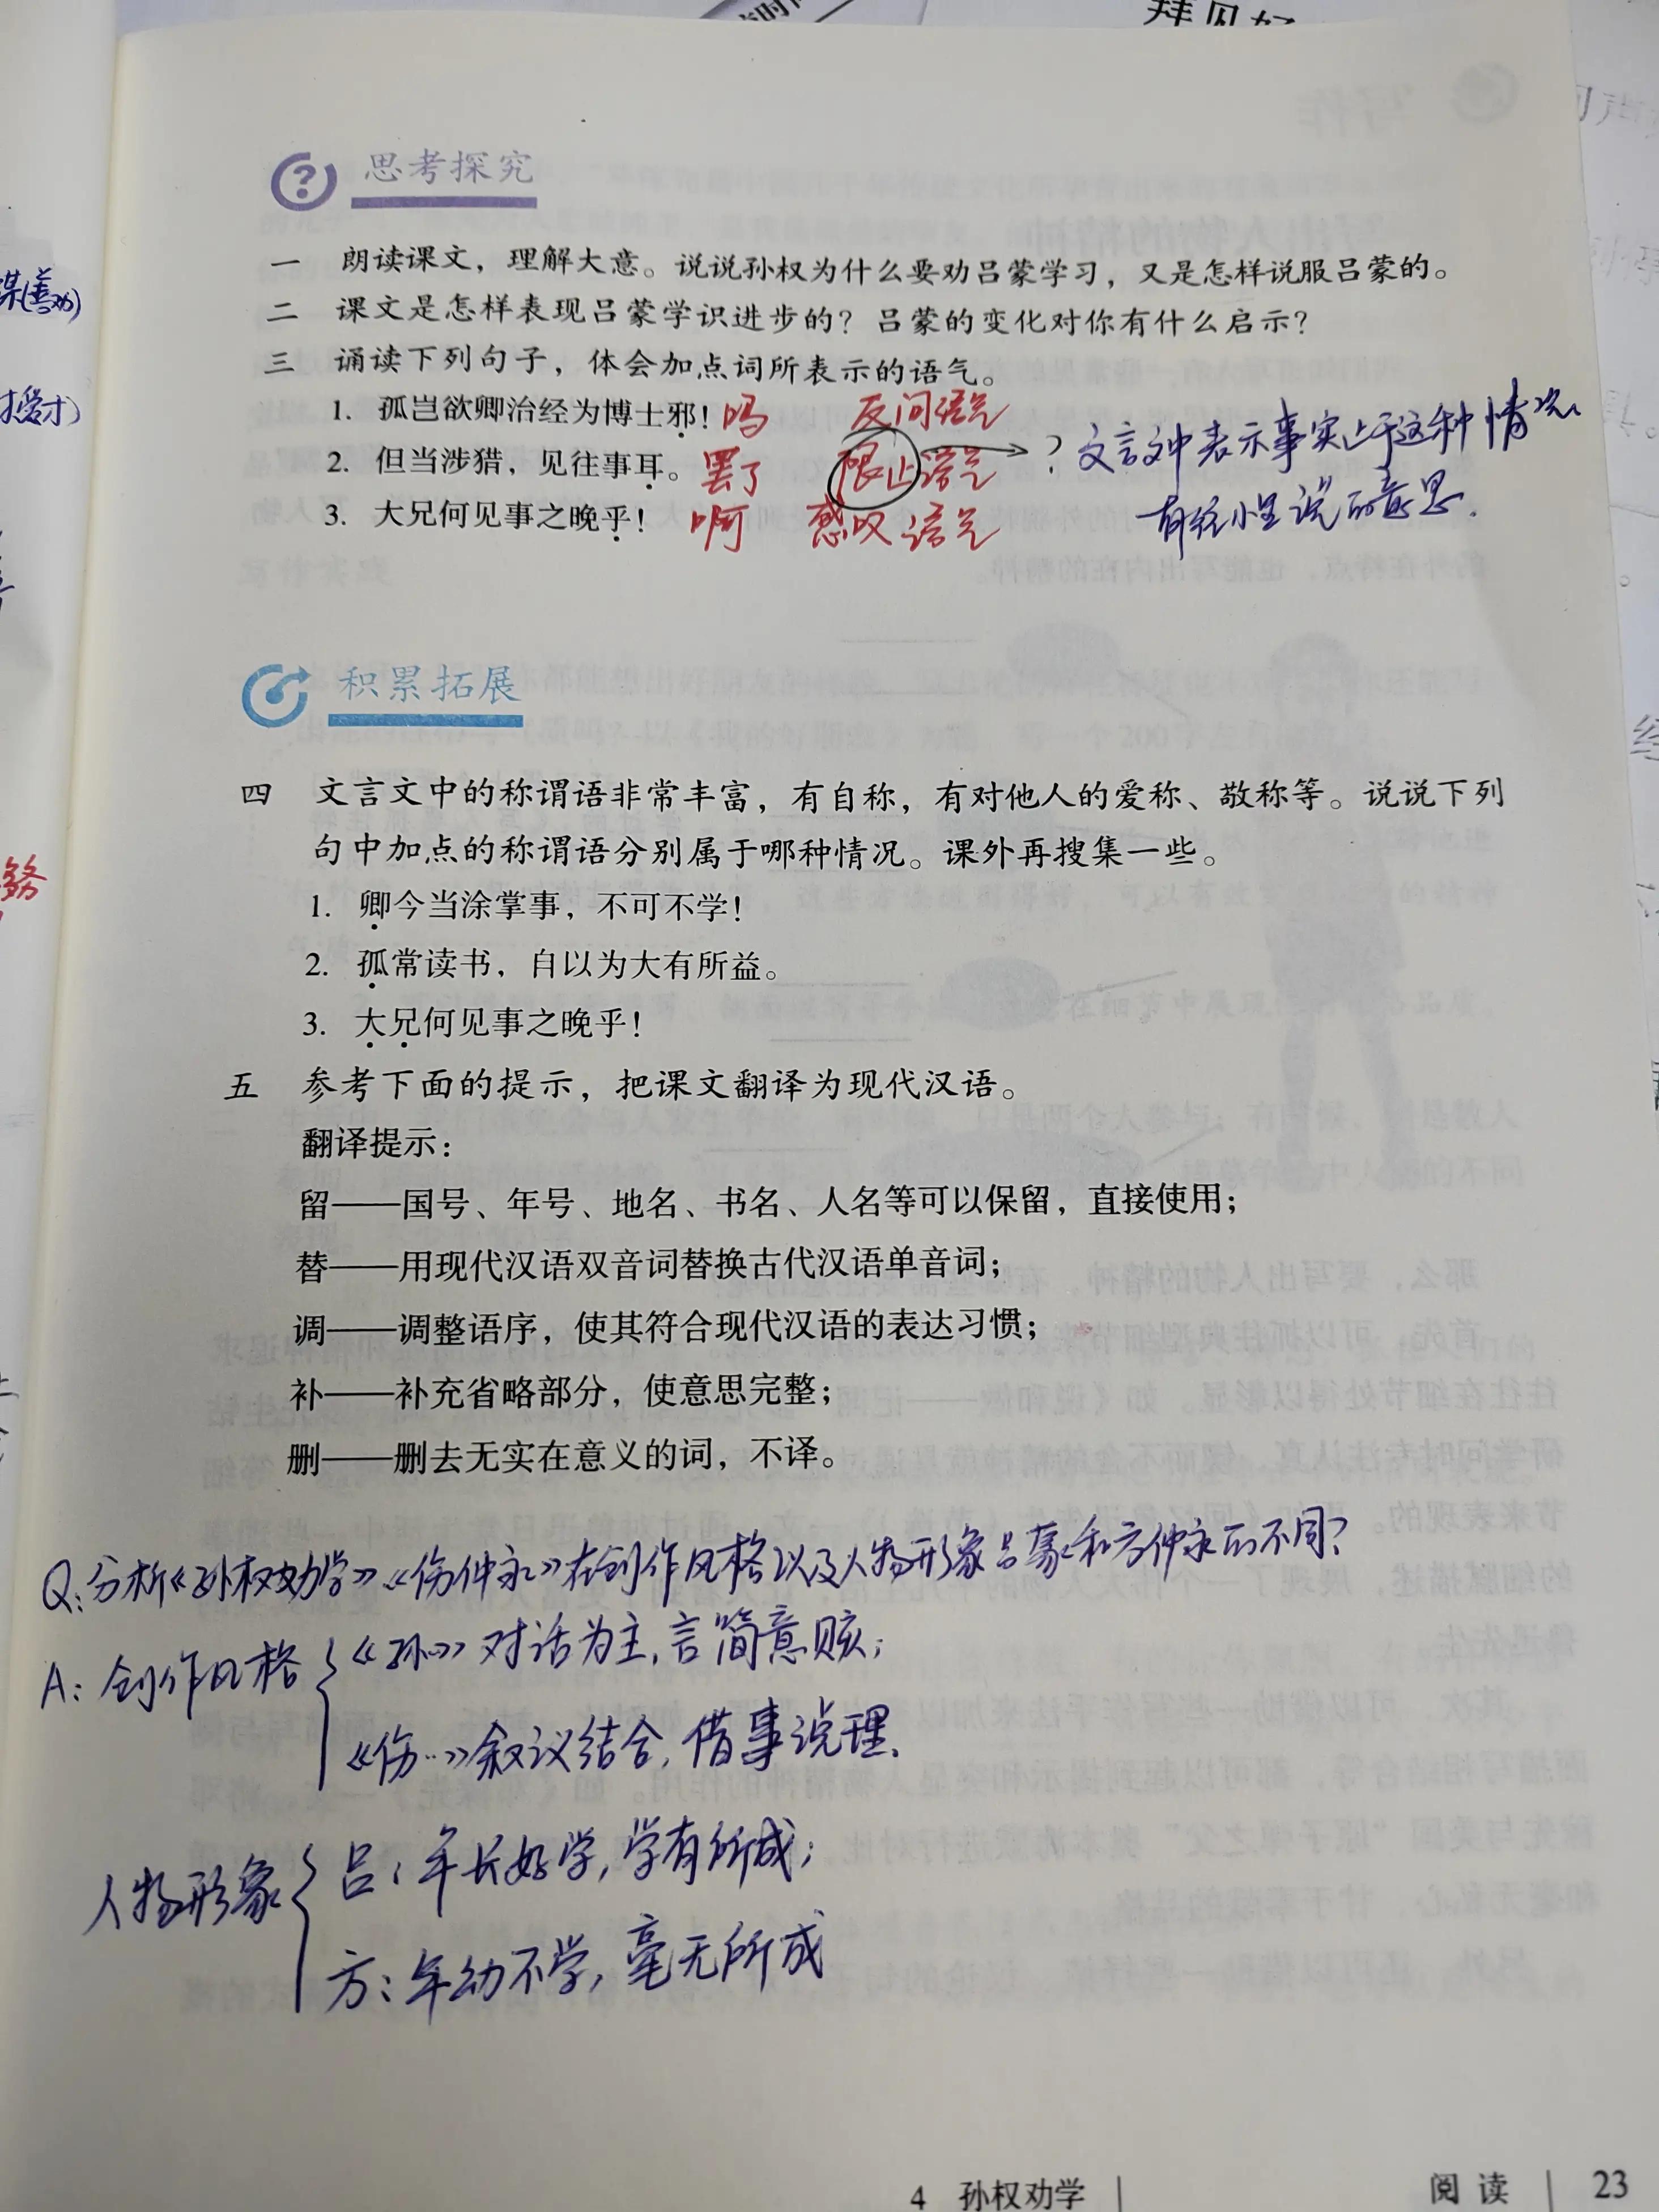 拜见好
思考探究
一 朗读课文，理解大意。说说孙权为什么要劝吕蒙学习，又是怎样说服吕蒙的。
二 课文是怎样表现吕蒙学识进步的？吕蒙的变化对你有什么启示？
三 诵读下列句子，体会加点词所表示的语气。
1. 孤岂欲卿治经为博士邪！ 吗 反问语气
2. 但当涉猎，见往事耳。 罢了 限止语气 ？文言文中表示事实止于这种情况
有往小里说的意思.
3. 大兄何见事之晚乎！ 啊 感叹语气
积累拓展
四 文言文中的称谓语非常丰富，有自称，有对他人的爱称、敬称等。说说下列
句中加点的称谓语分别属于哪种情况。课外再搜集一些。
1. 卿今当涂掌事，不可不学！
2. 孤常读书，自以为大有所益。
3. 大兄何见事之晚乎！
五 参考下面的提示，把课文翻译为现代汉语。
翻译提示：
留——国号、年号、地名、书名、人名等可以保留，直接使用；
替——用现代汉语双音词替换古代汉语单音词；
调——调整语序，使其符合现代汉语的表达习惯；
补——补充省略部分，使意思完整；
删——删去无实在意义的词，不译。
Q：分析《孙权劝学》《伤仲永》在创作风格以及人物形象吕蒙和方仲永的不同？
A：创作风格 《孙…》对话为主，言简意赅；
《伤…》叙议结合，借事说理.
人物形象 吕：年长好学，学有所成；
方：年幼不学，毫无所成
4 孙权劝学 | 阅读 | 23